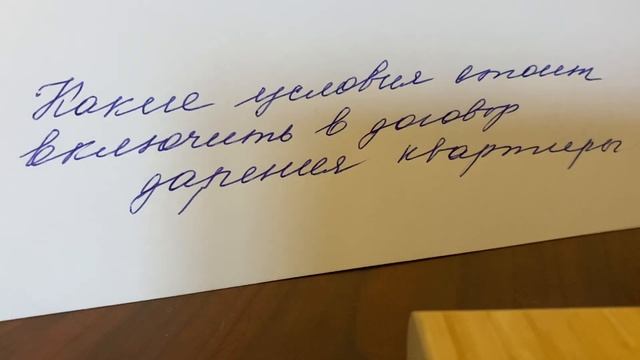 Какие условия стоит
включить в договор
дарения квартиры